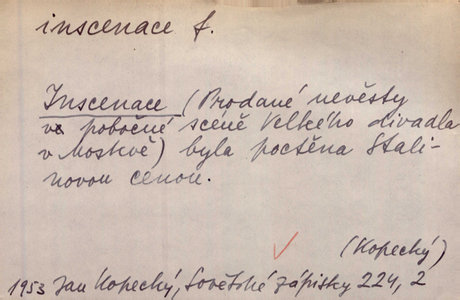 inscenace f.
Inscenace (Prodané nevěsty
ve pobočné scéně Velkého divadla
v Moskvě) byla poctěna Stali-
novou cenou.
(Kopecký)
1953 Jan Kopecký, Sovětské zápisky 224, 2